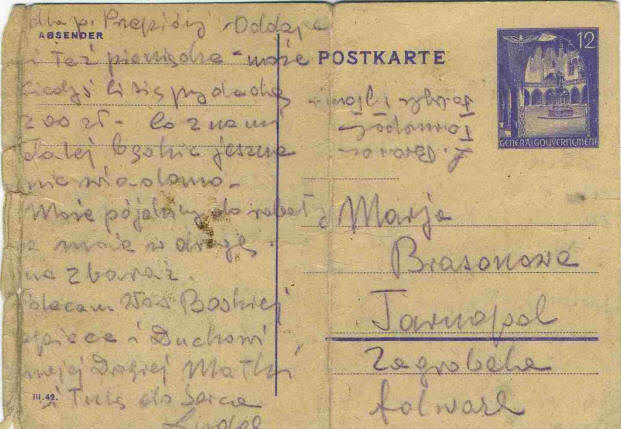 dla p. Oddaję
ABSENDER
i też pieniądze - może
POSTKARTE
12
kiedyś Ci się przydadzą
GENERALGOUVERNEMENT
200 zł - Co z nami
dalej będzie jeszcze
nie wiadomo -
Może pójdziemy do roboty
a może w drogę -
na Zbaraż.
Polecam Was Boskiej
opiece i Duchowi
mojej Drogiej Matki
III.42.
i Tulę do Serca
Marja
Brasonowa
Tarnopol
Zagrobela
folwark